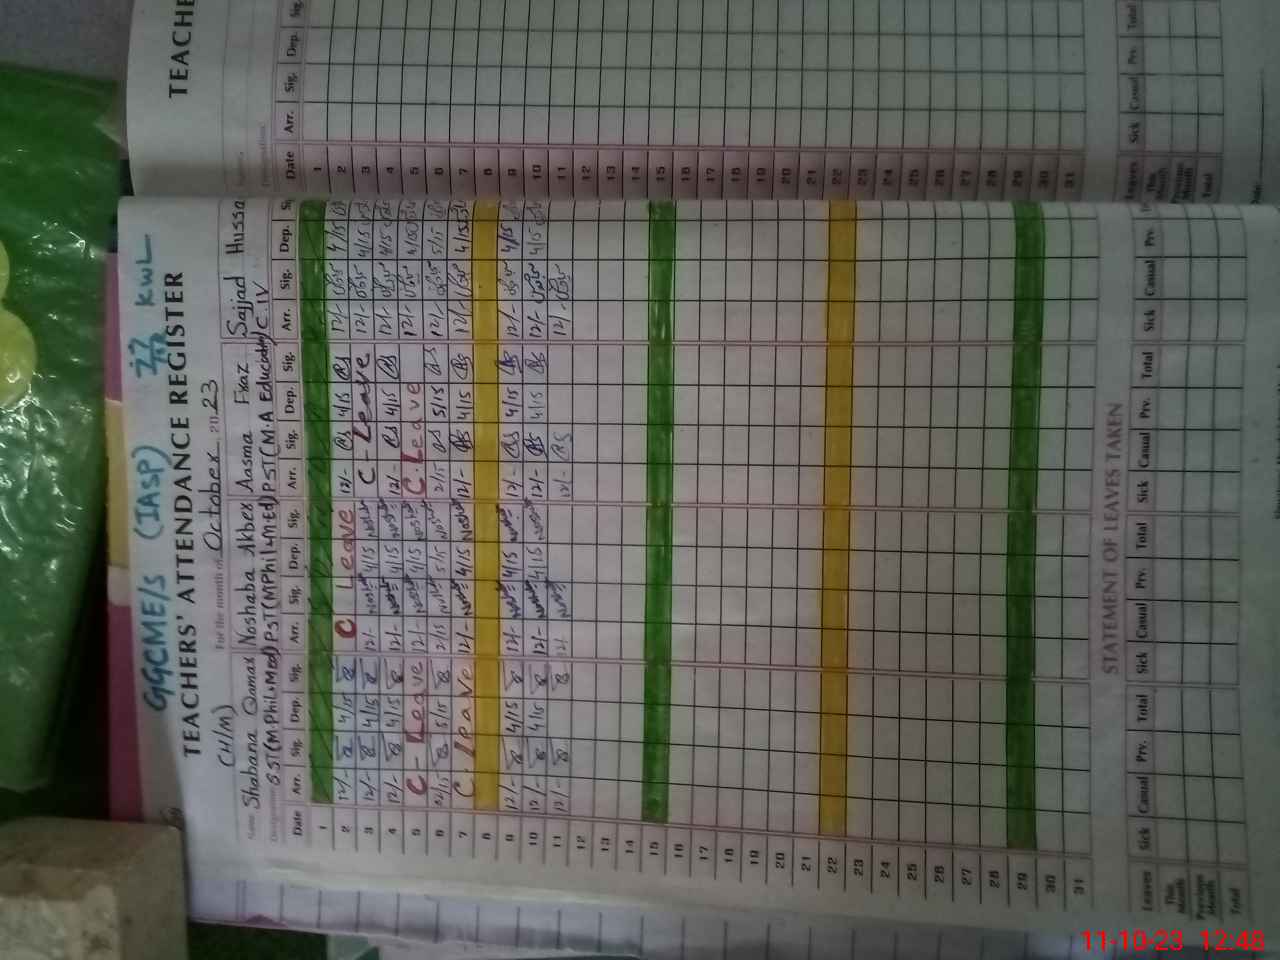 GGCME/S (IASP) 77 KWL
TEACHERS' ATTENDANCE REGISTER
(H/M) For the month of October 2023
Name Shabana Qamar Noshaba Akber Aasma Fraz Sajjad Hussa
EST(M.Phil+Med) PST(MPhil+M.Ed) PST(M.A Education) C.IV
Date Arr. Sig. Dep. Sig. Arr. Sig. Dep. Sig. Arr. Sig. Dep. Sig. Arr. Sig. Dep. Si
1
2 12/- 4/15 C Leave 12/- 4/15 12/- 4/15
3 12/- 4/15 12/- 4/15 C-Leave 12/- 4/15
4 12/- 4/15 12/- 4/15 12/- 4/15 12/- 4/15
5 C-Leave 12/- 4/15 C.Leave 12/- 4/15
6 02/15 5/15 2/15 5/15 2/15 5/15 12/- 5/15
7 C.leave 12/- 4/15 12/- 4/15 12/- 4/15
8
9 12/- 4/15 12/- 4/15 12/- 4/15 12/- 4/15
10 12/- 4/15 12/- 4/15 12/- 4/15 12/- 4/15
11 12/- 12/- 12/- 12/-
12
13
14
15
16
17
18
19
20
21
22
23
24
25
26
27
28
29
30
31
STATEMENT OF LEAVES TAKEN
Leaves Sick Casual Prv. Total Sick Casual Prv. Total Sick Casual Prv. Total Sick Casual Prv.
This Month
Previous Month
Total
TEACHE
Name
Date Arr. Sig. Dep. Sig.
1
2
3
4
5
6
7
8
9
10
11
12
13
14
15
16
17
18
19
20
21
22
23
24
25
26
27
28
29
30
31
Leaves Sick Casual Prv. Total
This Month
Previous Month
Total
11-10-23 12:48